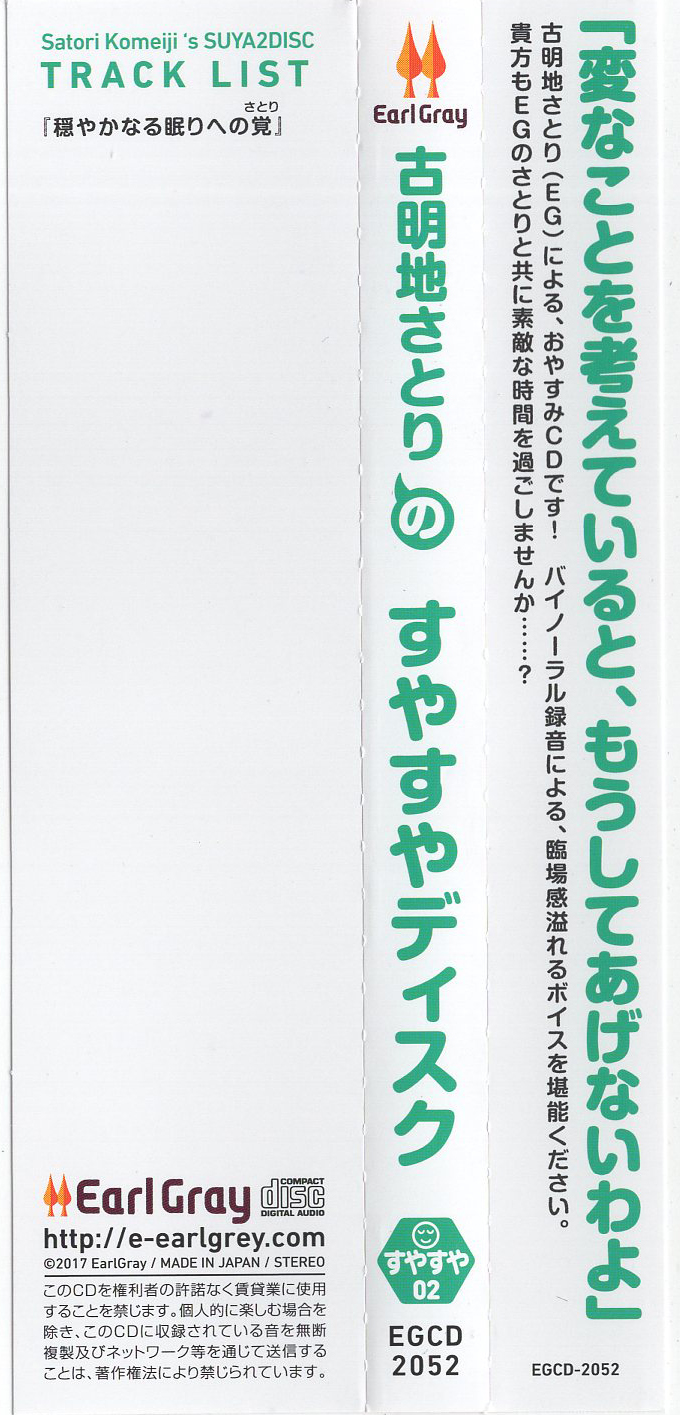 Satori Komeiji 's SUYA2DISC
TRACK LIST
さとり
『穏やかなる眠りへの覚』
EarlGray
COMPACT
disc
DIGITAL AUDIO
http://e-earlgrey.com
©2017 EarlGray / MADE IN JAPAN / STEREO
このCDを権利者の許諾なく賃貸業に使用
することを禁じます。個人的に楽しむ場合を
除き、このCDに収録されている音を無断
複製及びネットワーク等を通じて送信する
ことは、著作権法により禁じられています。
EarlGray
古明地さとりの すやすやディスク
すやすや
02
EGCD
2052
「変なことを考えていると、もうしてあげないわよ」
古明地さとり(EG)による、おやすみCDです! バイノーラル録音による、臨場感溢れるボイスを堪能ください。
貴方もEGのさとりと共に素敵な時間を過ごしませんか……?
EGCD-2052